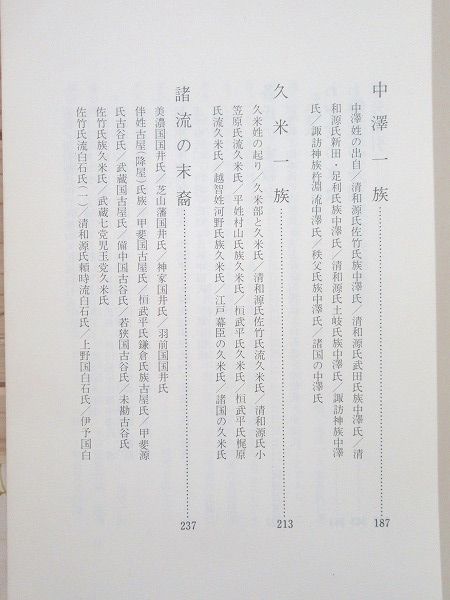 中澤一族……………………187
中澤姓の出自／清和源氏佐竹氏族中澤氏／清和源氏武田氏族中澤氏／清
和源氏新田・足利氏族中澤氏／清和源氏土岐氏族中澤氏／諏訪神族中澤
氏／諏訪神族杵淵流中澤氏／秩父氏族中澤氏／諸国の中澤氏
久米一族……………………213
久米姓の起り／久米部と久米氏／清和源氏佐竹氏流久米氏／清和源氏小
笠原氏流久米氏／平姓村山氏族久米氏／桓武平氏久米氏／桓武平氏梶原
氏流久米氏／越智姓河野氏族久米氏／江戸幕臣の久米氏／諸国の久米氏
諸流の末裔……………………237
美濃国国井氏／芝山藩国井氏／神家国井氏／羽前国国井氏
伴姓古屋（降屋）氏族／甲斐国古屋氏／桓武平氏鎌倉氏族古屋氏／甲斐源
氏古谷氏／武蔵国古屋氏／備中国古谷氏／若狭国古谷氏／未勘古谷氏
佐竹氏族久米氏／武蔵七党児玉党久米氏
佐竹氏流白石氏（一）／清和源氏頼時流白石氏／上野国白石氏／伊予国白